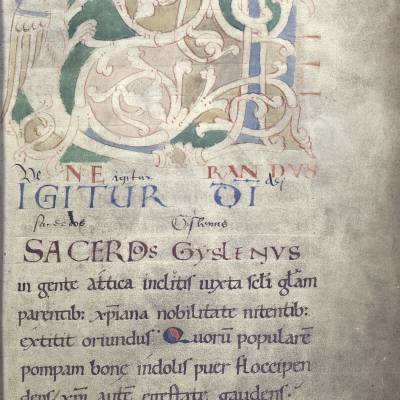 Ve NE igitur RANDUS
IGITUR DI dei
sacerdos Gislenus
SACERDs GySLENUS
in gente attica inclitis iuxta scli glam
parentib: xpiana nobilitate nitentib:
extitit oriundus. Quorū popularē
pompam bonę indolis puer floccipen
dens, xpm autē egestate gaudens.